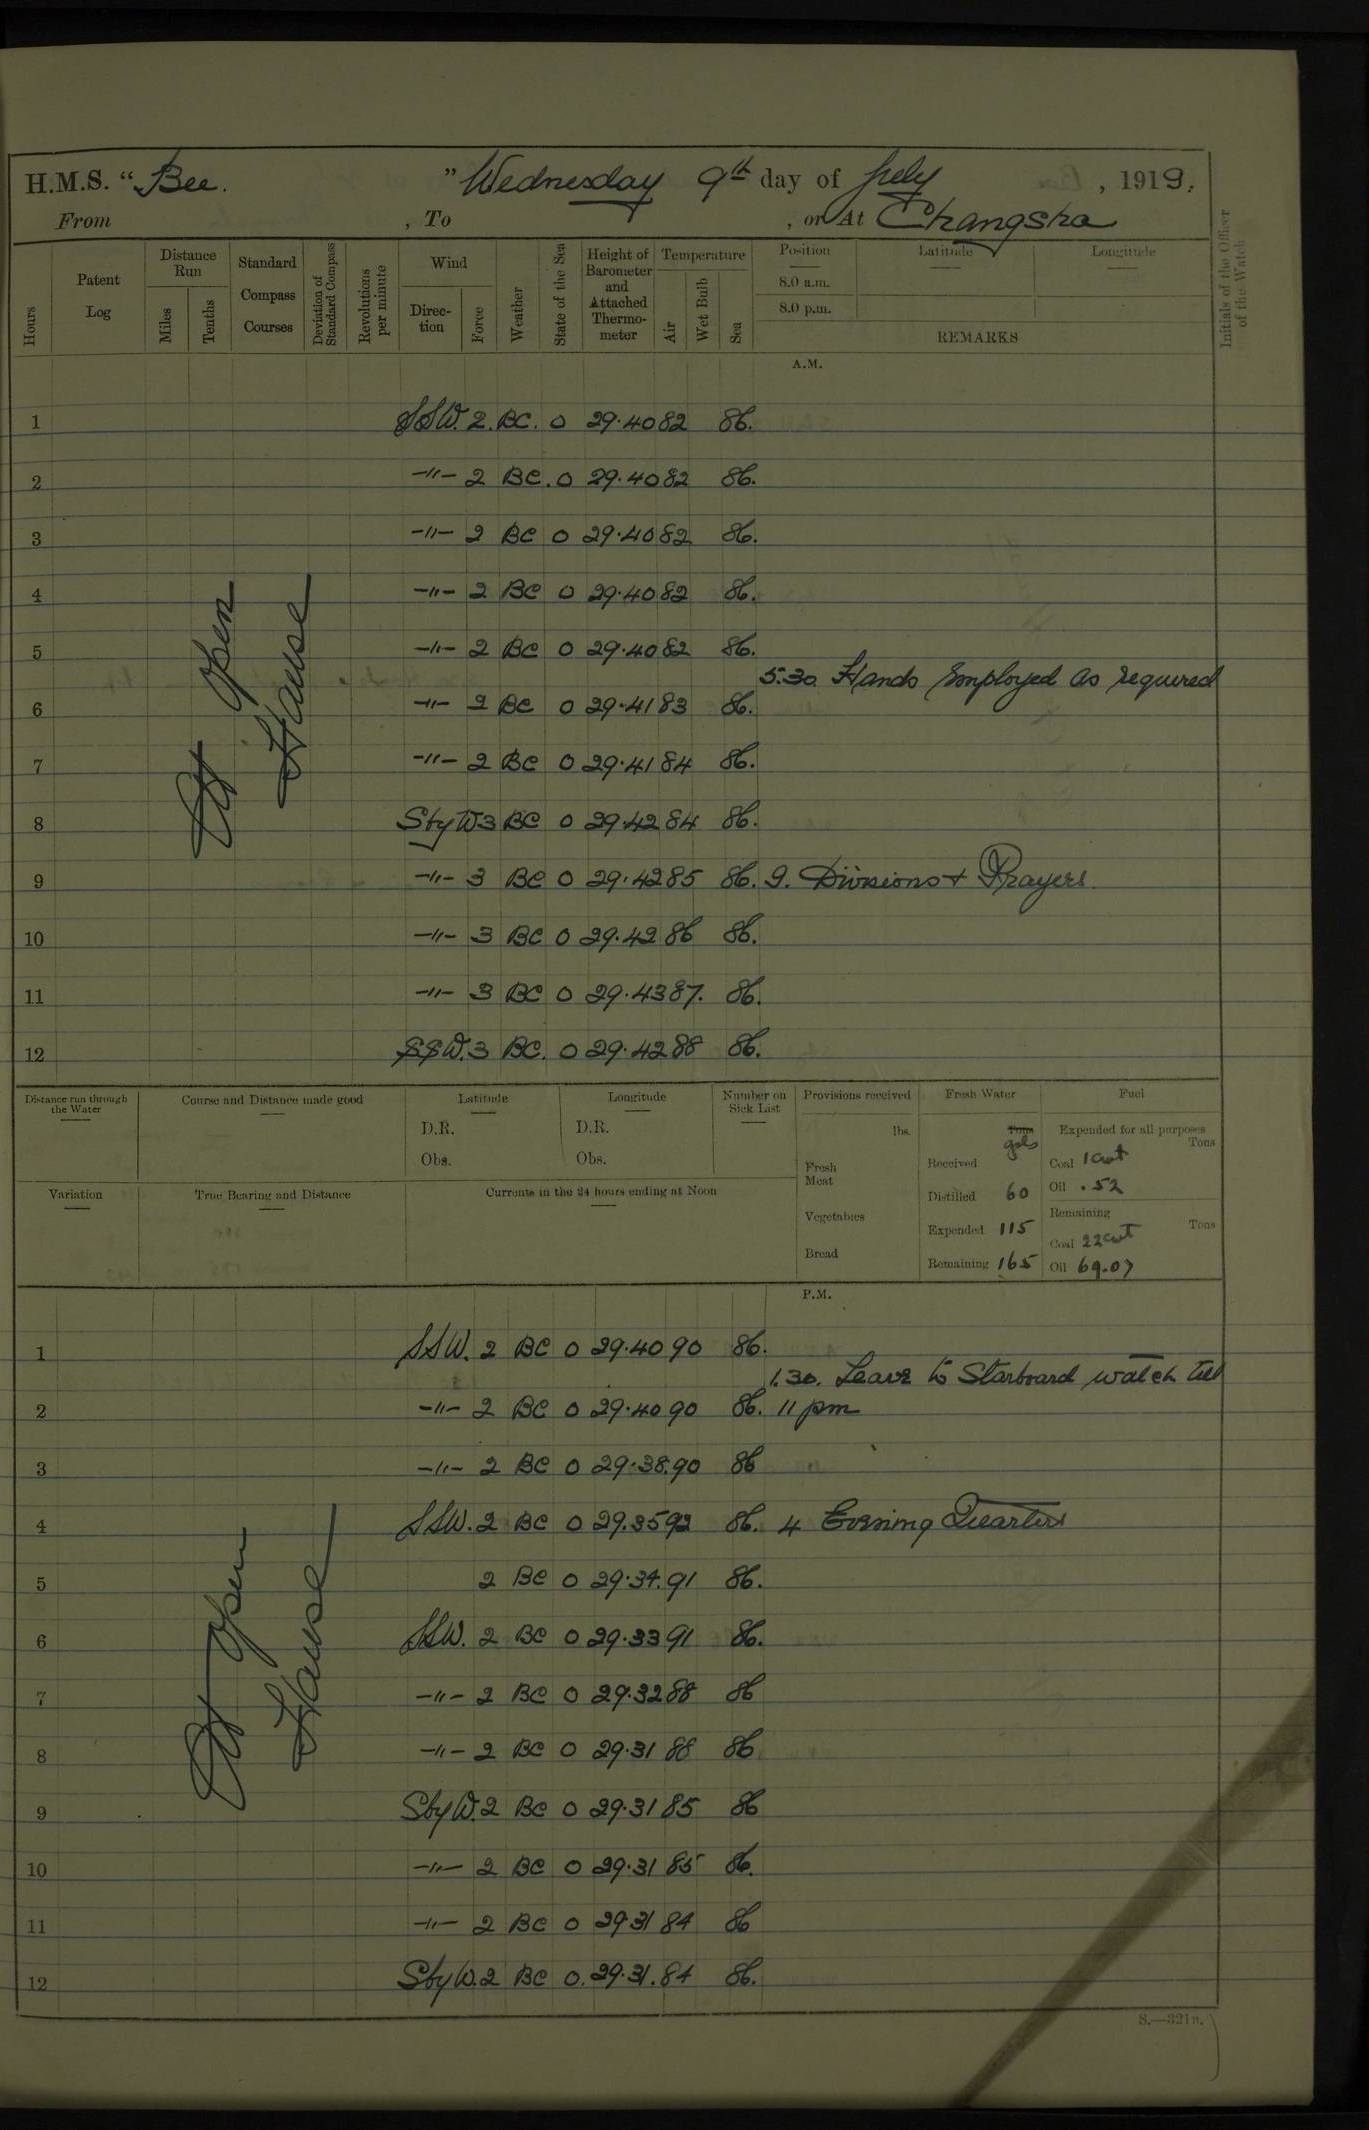 H.M.S. “ Bee. ” Wednesday 9th day of July , 1919.
From , To , or At Changsha
Hours
Patent Log
Distance Run
Miles
Tenths
Standard Compass Courses
Deviation of Standard Compass
Revolutions per minute
Wind
Direc- tion
Force
Weather
State of the Sea
Height of Barometer and Attached Thermo- meter
Temperature
Air
Wet Bulb
Sea
Position
8.0 a.m.
8.0 p.m.
Latitude
Longitude
REMARKS
Initials of the Officer of the Watch
A.M.
1 SSW. 2. BC. 0 29.40 82 86.
2 -"- 2 BC. 0 29.40 82 86.
3 -"- 2 BC 0 29.40 82 86.
4 -"- 2 BC 0 29.40 82 86.
5 -"- 2 BC 0 29.40 82 86.
5.30. Hands Employed as required
6 -"- 2 BC 0 29.41 83 86.
7 -"- 2 BC 0 29.41 84 86.
8 SbyW 3 BC 0 29.42 84 86.
9 -"- 3 BC 0 29.42 85 86. 9. Divisions + Prayers
10 -"- 3 BC 0 29.42 86 86.
11 -"- 3 BC 0 29.43 87. 86.
12 SSW. 3 BC. 0 29.42 88 86.
At Open
Hawse
Distance run through the Water
Course and Distance made good
Latitude
D.R.
Obs.
Longitude
D.R.
Obs.
Number on Sick List
Variation
True Bearing and Distance
Currents in the 24 hours ending at Noon
Provisions received
lbs.
Fresh Meat
Vegetables
Bread
Fresh Water
Tons
gals
Received
Distilled 60
Expended 115
Remaining 165
Fuel
Expended for all purposes
Tons
Coal 1 cwt
Oil .52
Remaining
Tons
Coal 22 cwt
Oil 69.07
P.M.
1 SSW. 2 BC 0 29.40 90 86.
1.30. Leave to Starboard watch till
2 -"- 2 BC 0 29.40 90 86. 11 pm
3 -"- 2 BC 0 29.38. 90 86
4 SSW. 2 BC 0 29.35 92 86. 4 Evening Quarters
5 2 BC 0 29.34. 91 86.
6 SSW. 2 BC 0 29.33 91 86.
7 -"- 2 BC 0 29.32 88 86
8 -"- 2 BC 0 29.31 88 86
9 SbyW. 2 BC 0 29.31 85 86
10 -"- 2 BC 0 29.31 85 86.
11 -"- 2 BC 0 29.31 84 86
12 SbyW. 2 BC 0. 29.31. 84 86.
At Open
Hawse
S.—321B.